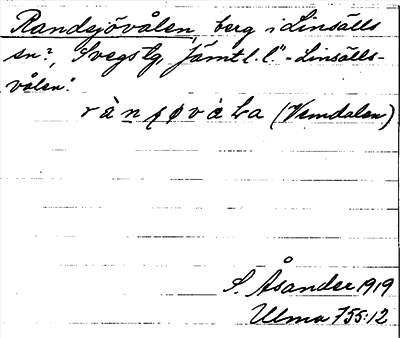 Randsjövålen, berg i Linsälls
sn?, Svegs tg, Jämtl. l. "-Linsälls-
vålen".
r à n ʃ ø v å ƚ a (Vemdalen)
S. Åsander 1919
Ulma 755:12